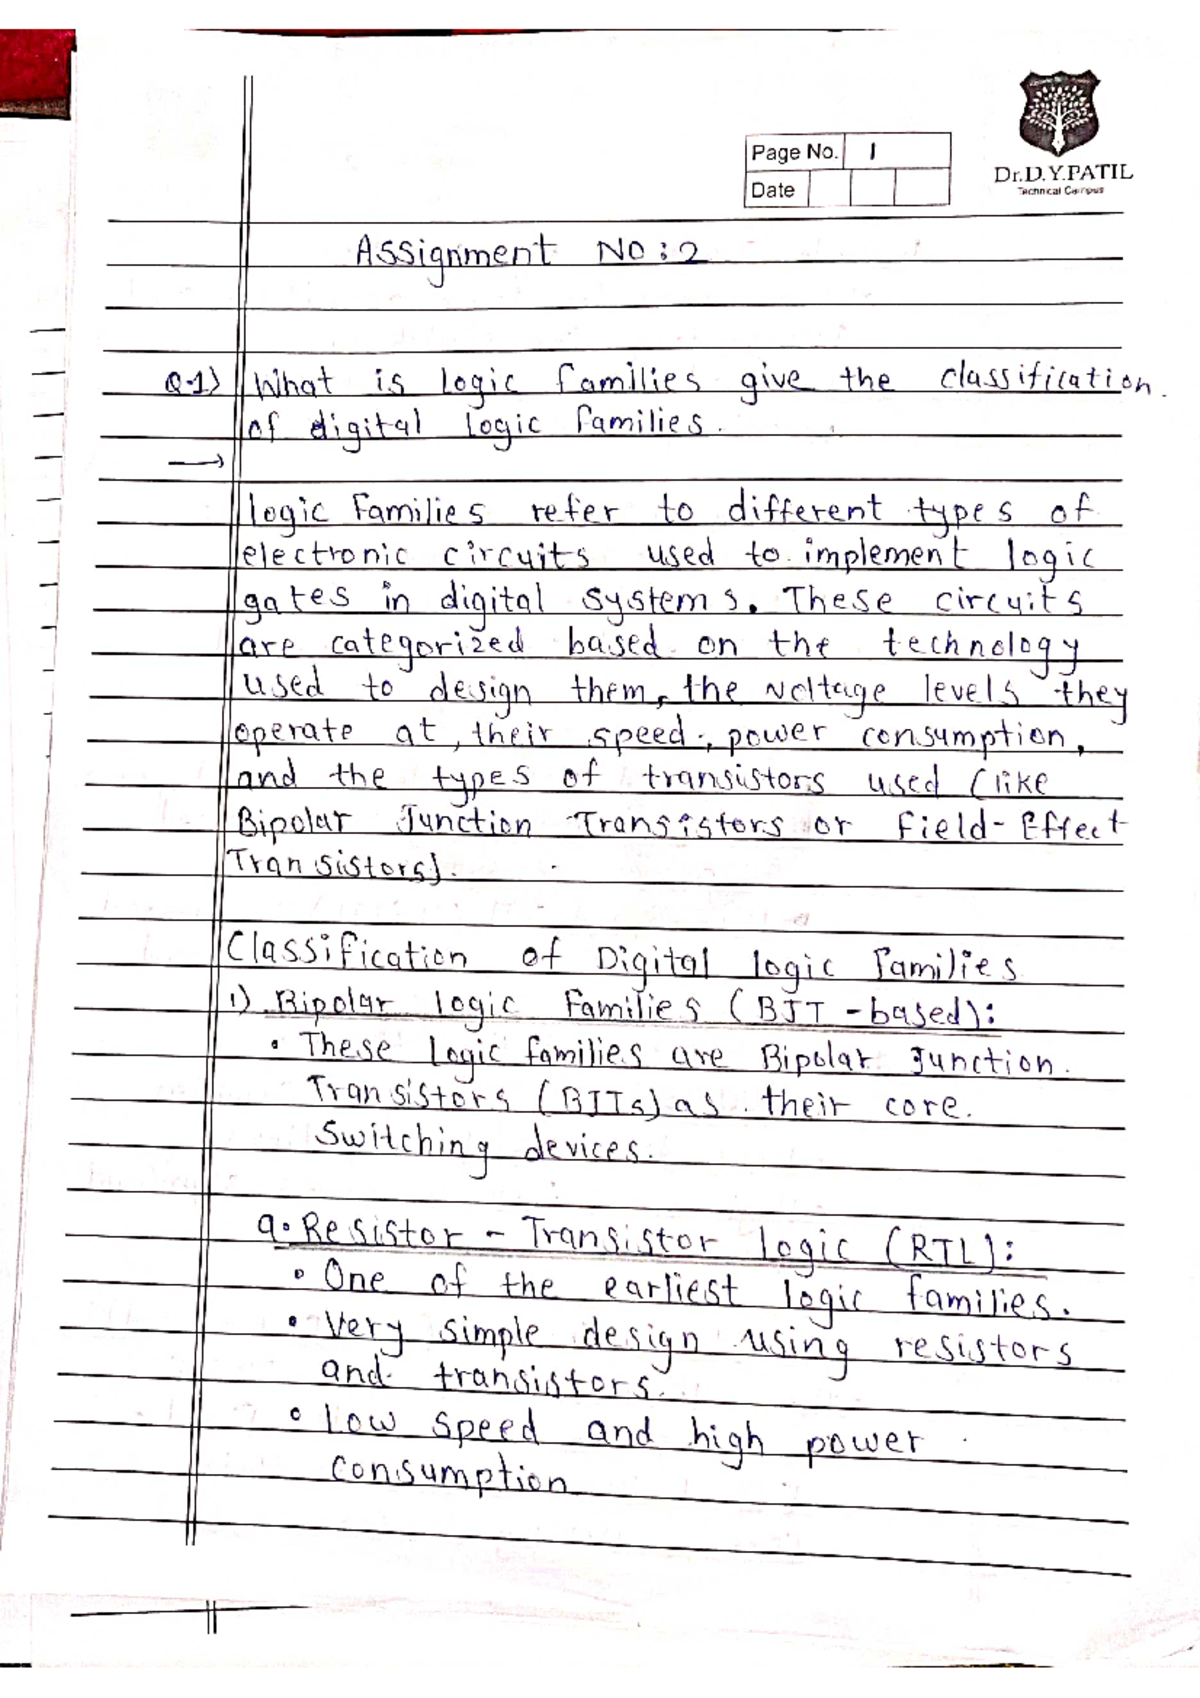 Page No. 1
Date
Dr.D.Y.PATIL
Technical Campus
Assignment NO : 2
Q.1) What is logic families give the classification
of digital logic families.
→
logic Families refer to different types of
electronic circuits used to implement logic
gates in digital systems. These circuits
are categorized based on the technology
used to design them, the voltage levels they
operate at, their speed, power consumption,
and the types of transistors used (like
Bipolar Junction Transistors or Field-Effect
Transistors).
Classification of Digital logic families
1) Bipolar logic Families (BJT-based):
• These logic families are Bipolar Junction
Transistors (BJTs) as their core.
Switching devices.
a. Resistor - Transistor logic (RTL):
• One of the earliest logic families.
• Very simple design using resistors
and transistors.
• Low speed and high power
consumption